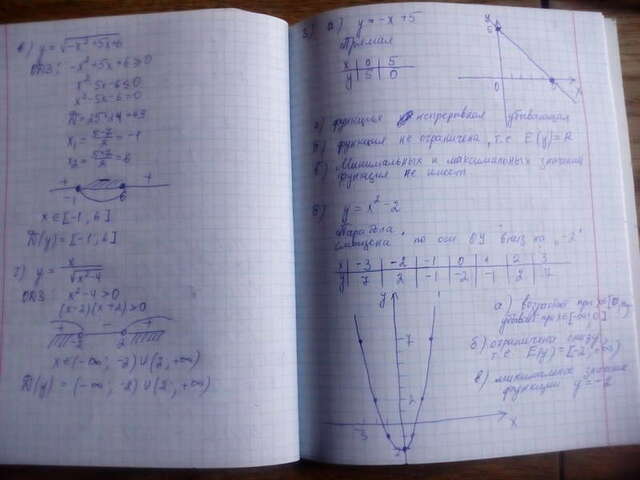 в) y = √-x²+5x+6
ОДЗ: -x²+5x+6≥0
x²-5x-6≤0
x²-5x-6=0
D=25+24=49
x₁ = 5-7/2 = -1
x₂ = 5+7/2 = 6
+ - +
-1 6
x∈[-1; 6]
D(y)=[-1; 6]
г) y = x/√x²-4
ОДЗ: x²-4>0
(x-2)(x+2)>0
+ - +
-2 2
x∈(-∞; -2)∪(2; +∞)
D(y) = (-∞; -2)∪(2; +∞)
3) а) y = -x+5
Прямая
x 0 5
y 5 0
y
5
0 5 x
а) функция непрерывная убывающая
б) функция не ограничена, т.е E(y)=R
в) Минимальных и максимальных значений
функция не имеет
б) y = x²-2
Парабола,
смещена по оси OY вниз на „-2"
x -3 -2 -1 0 1 2 3
y 7 2 -1 -2 -1 2 7
y
7
2
-3
-2
x
а) возрастает при x∈[0;
убывает при x∈[-∞; 0]
б) ограничена снизу,
т.е E(y)=[-2; +∞)
в) минимальное значение
функции y=-2